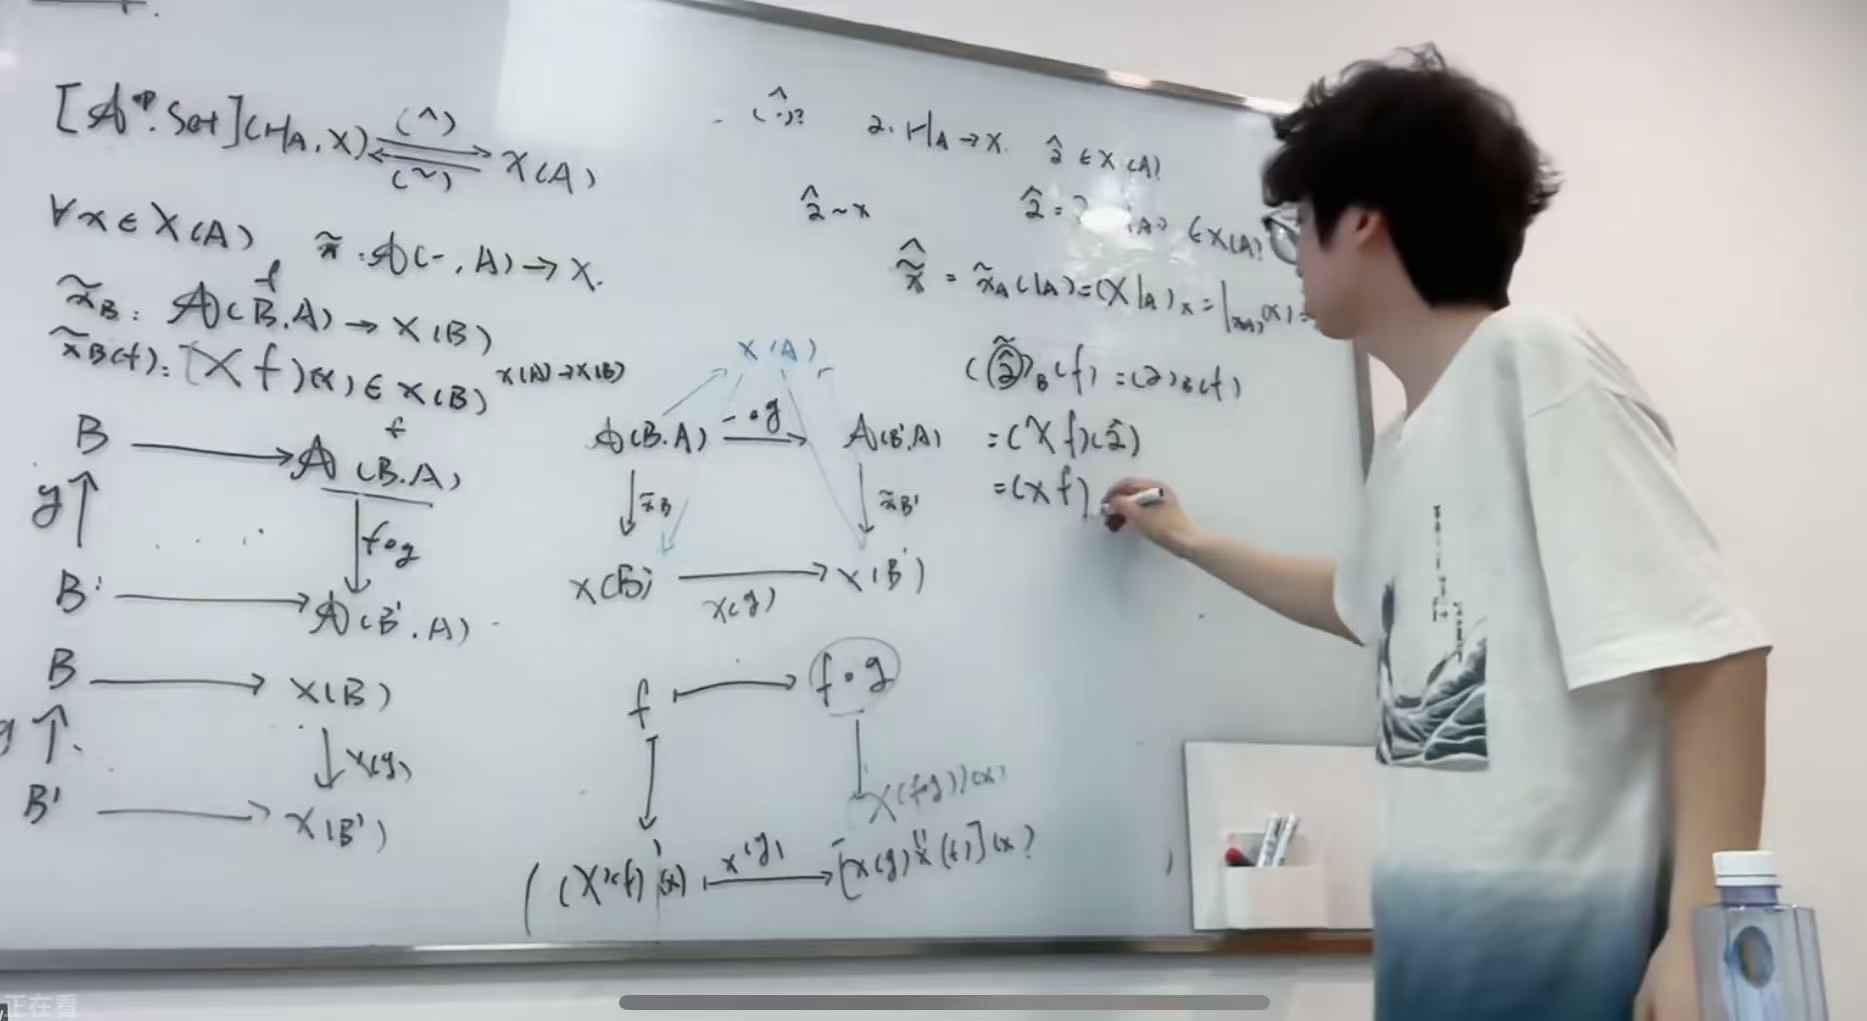 [𝒜^op, Set](H_A, X) ⇄ X(A)
(^)
(~)
∀x ∈ X(A) x̃ : 𝒜(-, A) → X.
f
x̃_B : 𝒜(B, A) → X(B)
x̃_B(f) : (Xf)(x) ∈ X(B) X(A)→X(B)
B → 𝒜(B, A)
f
g ↑
↓ f∘g
B' → 𝒜(B', A)
B → X(B)
g ↑
↓ X(g)
B' → X(B')
X(A)
𝒜(B, A) → 𝒜(B', A)
-∘g
↓ x̃_B
↓ x̃_B'
X(B) → X(B')
X(g)
f ↦ f∘g
X(f∘g)(x)
(X(f))(x) ↦ [X(g) X(f)](x)
X(g)
(^)? 2. H_A → X. 2̂ ∈ X(A)
2̂ ~ x
2̂ = ? ∈ X(A)
= x̃_A(1_A) = (X1_A)x = 1_X(A)(x) =
)_B(f) = (2)_B(f)
= (Xf)(2̂)
= (Xf)
正在看